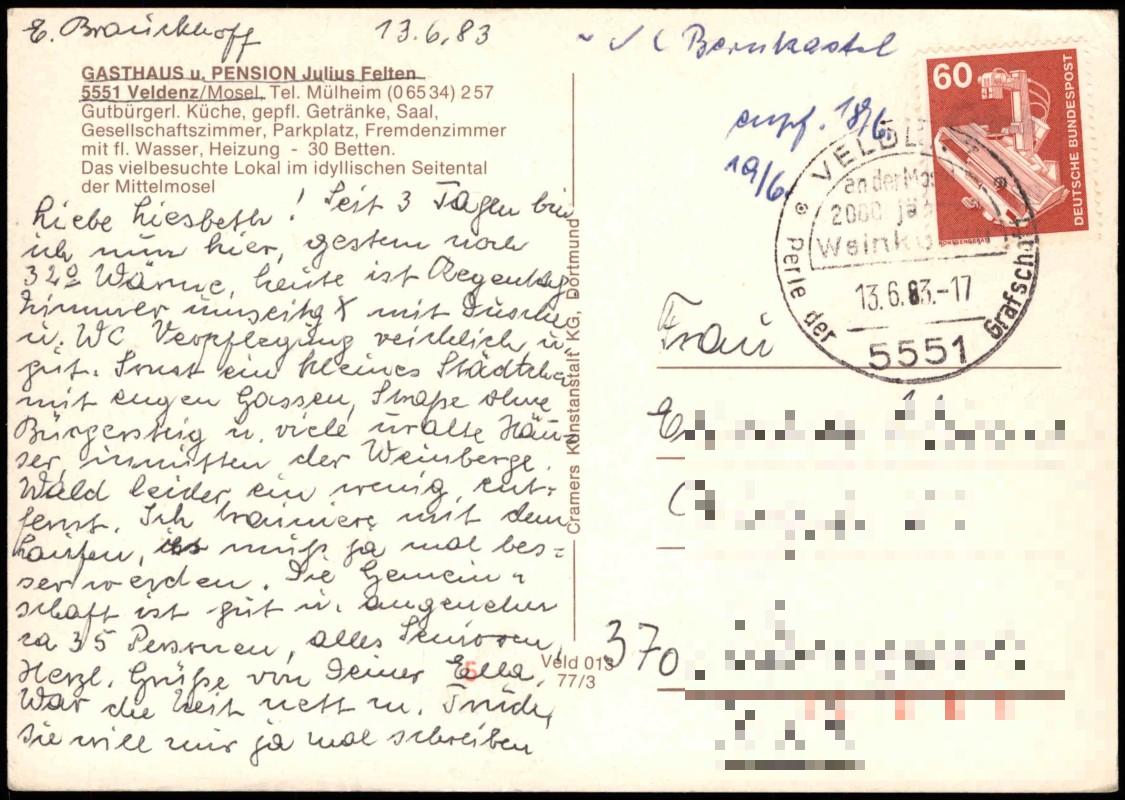 E. Brauckhoff 13.6.83
GASTHAUS u. PENSION Julius Felten
5551 Veldenz/Mosel, Tel. Mülheim (0 65 34) 2 57
Gutbürgerl. Küche, gepfl. Getränke, Saal,
Gesellschaftszimmer, Parkplatz, Fremdenzimmer
mit fl. Wasser, Heizung - 30 Betten.
Das vielbesuchte Lokal im idyllischen Seitental
der Mittelmosel
Liebe Liesbeth! Seit 3 Tagen bin
ich nun hier, gestern noch
32º Wärme, heute ist Regentag
Zimmer umseitg X mit Dusche
u. WC Verpflegung reichlich u
gut. Sonst ein kleines Städtchen
mit engen Gassen, Straße ohne
Bürgersteig u. viele uralte Häu-
ser, inmitten der Weinberge.
Wald leider ein wenig ent-
fernt. Ich trainiere mit dem
Laufen, es muß ja mal bes=
ser werden. Die Gemein-
schaft ist gut u. angenehm
ca 35 Personen, alles Senioren,
Herzl. Grüße von Deiner Ella,
War die Zeit nett m. Trude,
Sie will mir ja mal schreiben
Cramers Kunstanstalt KG, Dortmund
Veld 013
77/3
5
Bernkastel
empf. 18/6
19/6.
60
DEUTSCHE BUNDESPOST
an der Mos
2000 jäh
Weink
Perle der Grafschaft
13.6.83.-17
5551
Frau
370